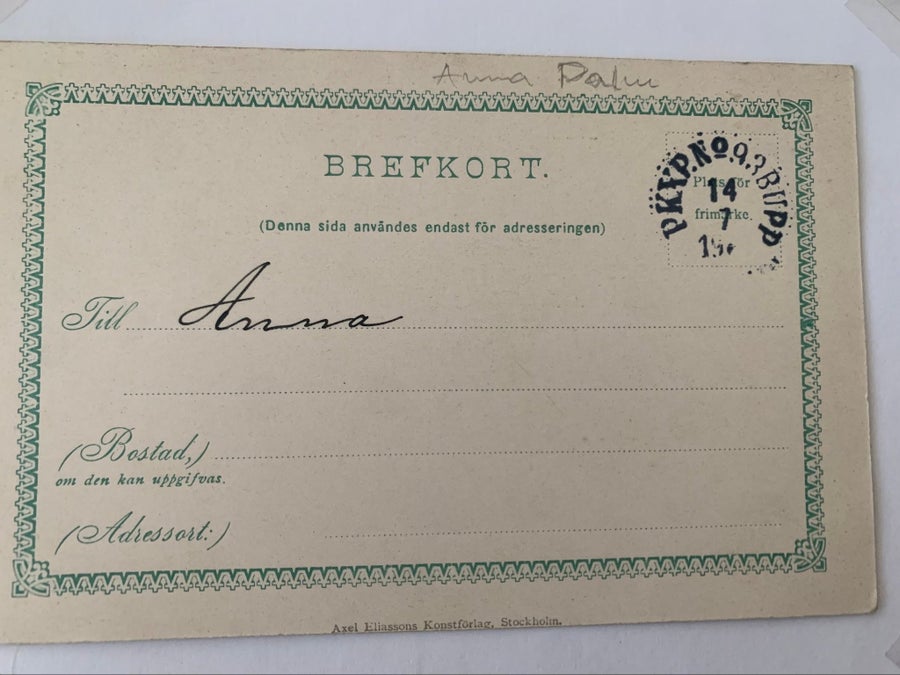 Anna Palm
BREFKORT.
PKXP.No.93BUPP
Plats för
14
frimärke.
7
(Denna sida användes endast för adresseringen)
Till Anna
(Bostad,)
om den kan uppgifvas.
(Adressort:)
Axel Eliassons Konstförlag, Stockholm.